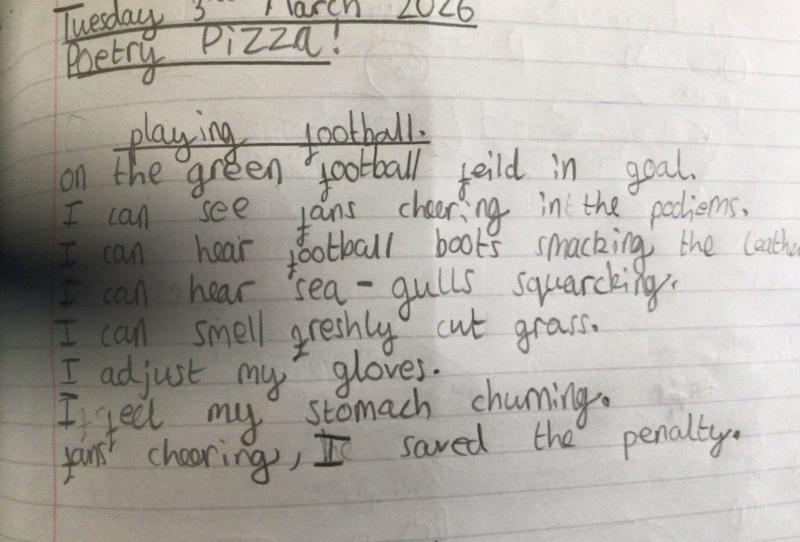 Tuesday 3rd March 2026
Poetry Pizza!
playing football.
on the green football feild in goal.
I can see fans cheering in the podiems.
I can hear football boots smacking the leathe
I can hear sea-gulls squarcking.
I can smell freshly cut grass.
I adjust my gloves.
I feel my stomach churning.
fans cheering, I saved the penalty.